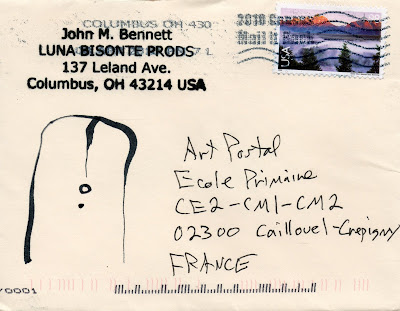 COLUMBUS OH 430
John M. Bennett
LUNA BISONTE PRODS
137 Leland Ave.
Columbus, OH 43214 USA
2010 Census
Mail It Back
USA
Art Postal
Ecole Primaire
CE2-CM1-CM2
02300 Caillouel-Crepigny
FRANCE